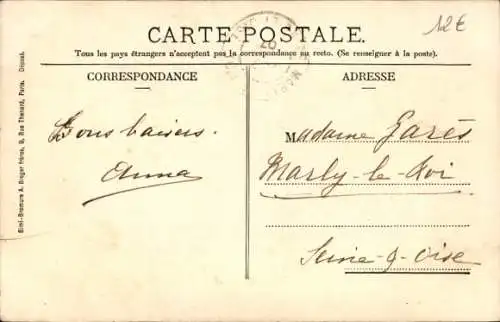 CARTE POSTALE.
12€
Tous les pays étrangers n'acceptent pas la correspondance au recto. (Se renseigner à la poste).
CORRESPONDANCE
ADRESSE
Bons baisers.
Anna
Madame Garès
Marly-le-Roi
Seine-&-Oise
Simi-Bromure A. Breger frères, 9, Rue Thénard, Paris. Déposé.